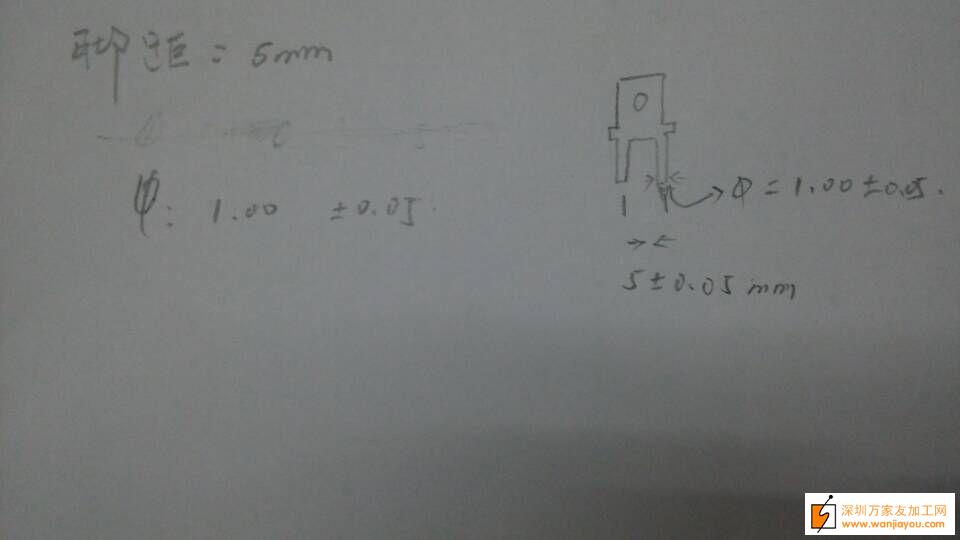 脚距 = 5mm
φ: 1.00 ±0.05.
0
φ = 1.00±0.05.
5±0.05mm
深圳万家友加工网
www.wanjiayou.com